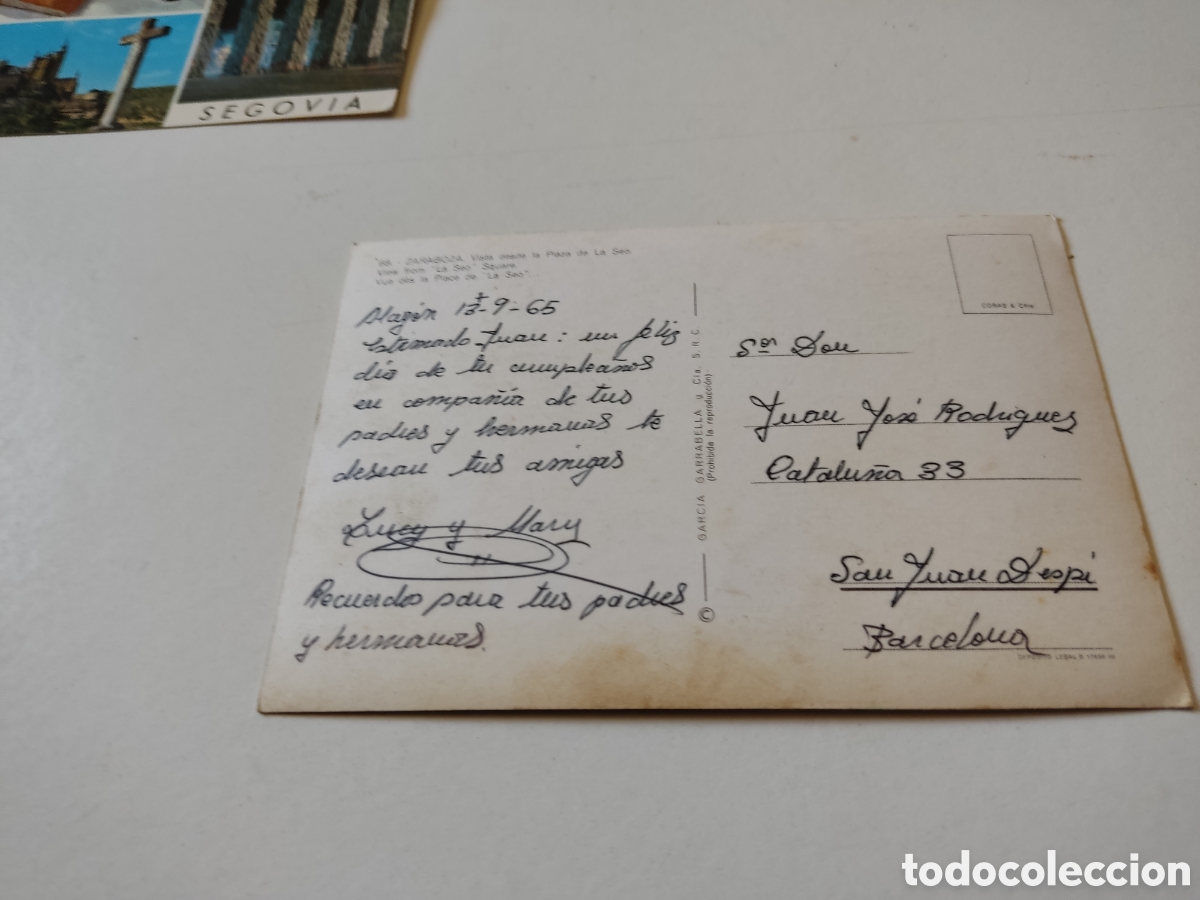 SEGOVIA
98 - ZARAGOZA. Vista desde la Plaza de La Seo
View from "La Seo" Square
Vue dès la Place de "La Seo"
Alagón 13-9-65
Estimado Juan: un feliz
día de tu cumpleaños
en compañía de tus
padres y hermanas te
desean tus amigas
Lucy y Mary
Recuerdos para tus padres
y hermanas.
GARCIA GARRABELLA y Cía. S.R.C.
(Prohibida la reproducción)
©
Sor Don
Juan José Rodrigues
Cataluña 33
San Juan Despi
Barcelona
DEPOSITO LEGAL B
todocoleccion